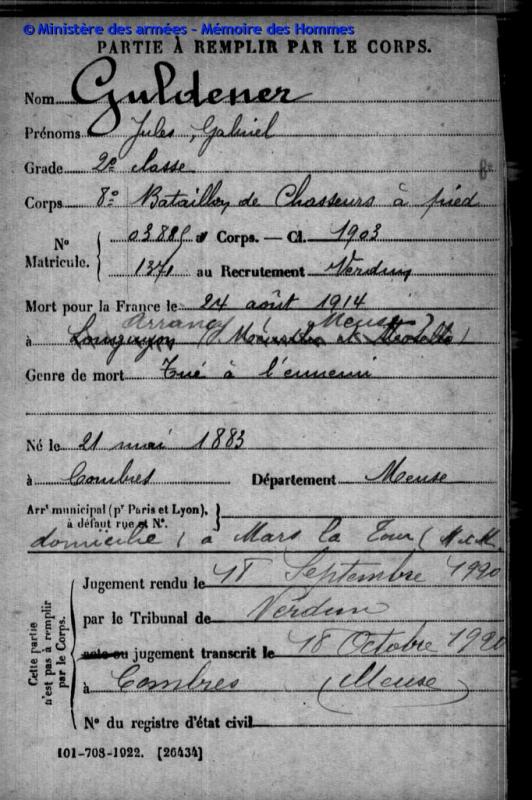 © Ministère des armées - Mémoire des Hommes
PARTIE À REMPLIR PAR LE CORPS.
Nom Guldener
Prénoms Jules, Gabriel
Grade 2e classe
Corps 8e Bataillon de Chasseurs à pied
Nº Matricule. { 03885 Corps. — Cl. 1903
1371 au Recrutement Verdun
Mort pour la France le 24 août 1914
Arrancy Meuse
à Longuyon (Meurthe et Moselle)
Genre de mort Tué à l'ennemi
Né le 21 mai 1883
à Combres Département Meuse
Arrt municipal (pr Paris et Lyon), }
à défaut rue et Nº.
domicilié à Mars la Tour (M et M.
Cette partie n'est pas à remplir par le Corps.
Jugement rendu le 18 Septembre 1920
par le Tribunal de Verdun
acte ou jugement transcrit le 18 Octobre 1920
à Combres (Meuse)
Nº du registre d'état civil
101-708-1922. [26434]